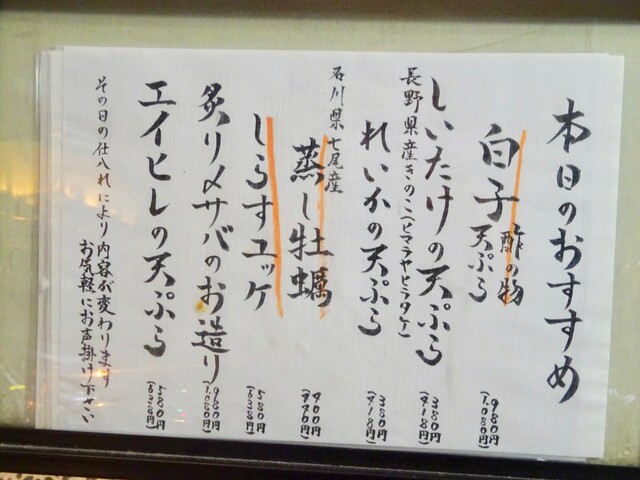 本日のおすすめ
白子 酢の物
天ぷら
980円
(1.080円)
しいたけの天ぷら
380円
(418円)
長野県産きのこ(ヒマラヤヒラタケ)
れいかの天ぷら
380円
(418円)
石川県七尾産
蒸し牡蠣
400円
(440円)
しらすユッケ
580円
(638円)
炙り〆サバのお造り
980円
(1.080円)
エイヒレの天ぷら
580円
(638円)
その日の仕入れにより内容が変わります
お気軽にお声掛け下さい